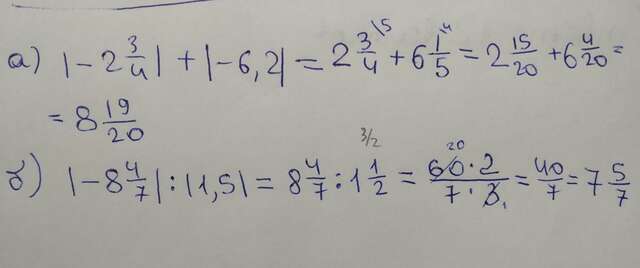 а) |-2 3/4| + |-6,2| = 2 3/4 \5 + 6 1/5 \4 = 2 15/20 + 6 4/20 =
= 8 19/20
3/2
б) |-8 4/7| : |1,5| = 8 4/7 : 1 1/2 = 60 20 · 2 / 7 · 3 1 = 40/7 = 7 5/7